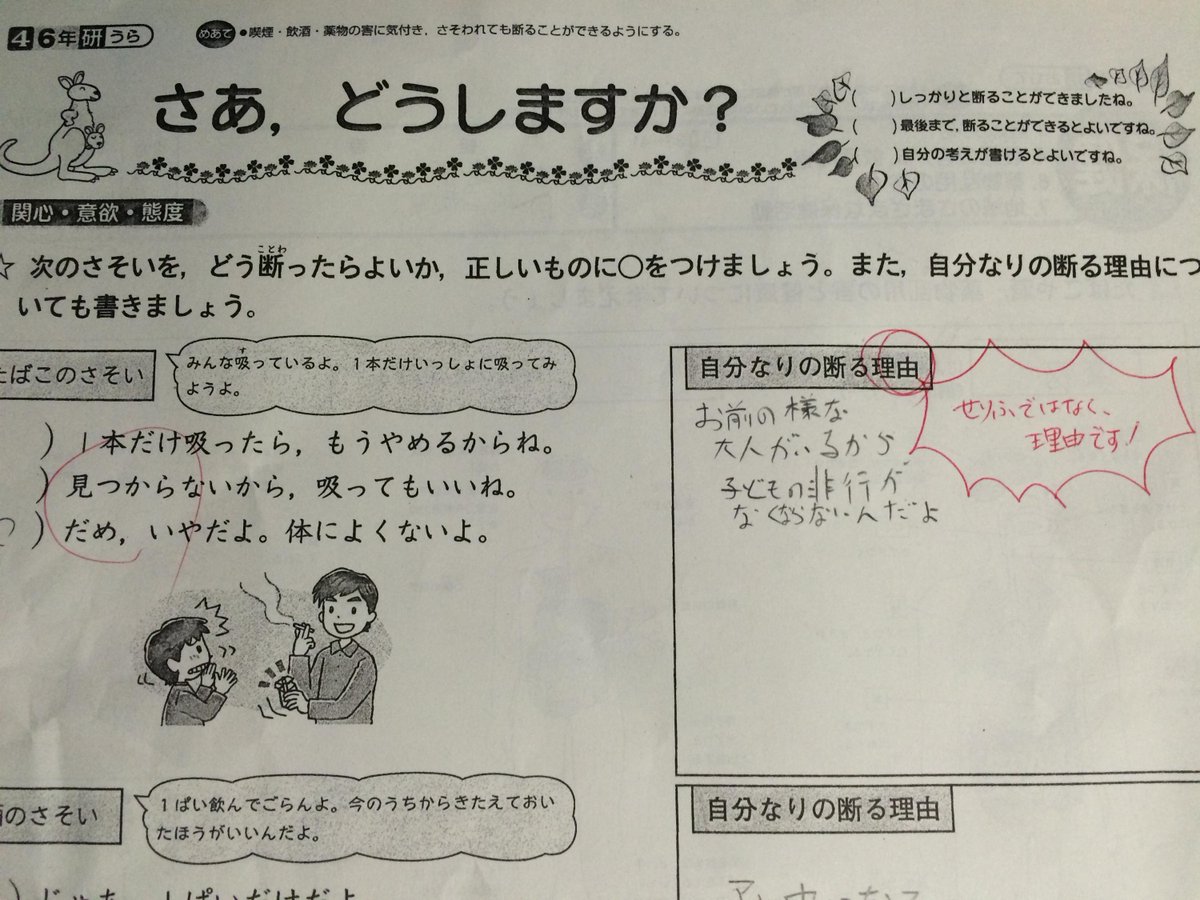 4 6年 研 うら
めあて ●喫煙・飲酒・薬物の害に気付き，さそわれても断ることができるようにする。
さあ，どうしますか？
(　　)しっかりと断ることができましたね。
(　　)最後まで，断ることができるとよいですね。
(　　)自分の考えが書けるとよいですね。
関心・意欲・態度
☆ 次のさそいを，どう断ったらよいか，正しいものに○をつけましょう。また，自分なりの断る理由につ
ことわ
いても書きましょう。
たばこのさそい
みんな吸っているよ。１本だけいっしょに吸ってみ
す
ようよ。
)１本だけ吸ったら，もうやめるからね。
)見つからないから，吸ってもいいね。
)だめ，いやだよ。体によくないよ。
自分なりの断る理由
お前の様な
大人がいるから
子どもの非行が
なくならないんだよ
せりふではなく、
理由です！
のさそい
１ぱい飲んでごらんよ。今のうちからきたえておい
たほうがいいんだよ。
自分なりの断る理由